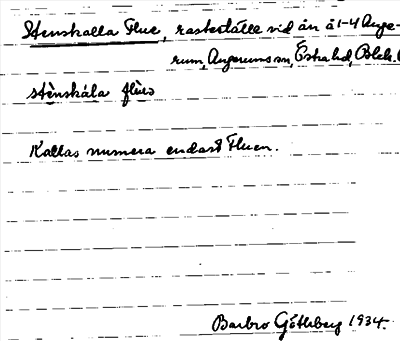 Stenskalla Flue, rasteställe vid ån å 1-4 Ange-
rum, Angerums sn, Östra hd, Blek.
stènskála flùs
Kallas numera endast Fluen.
Barbro Götheberg 1934.